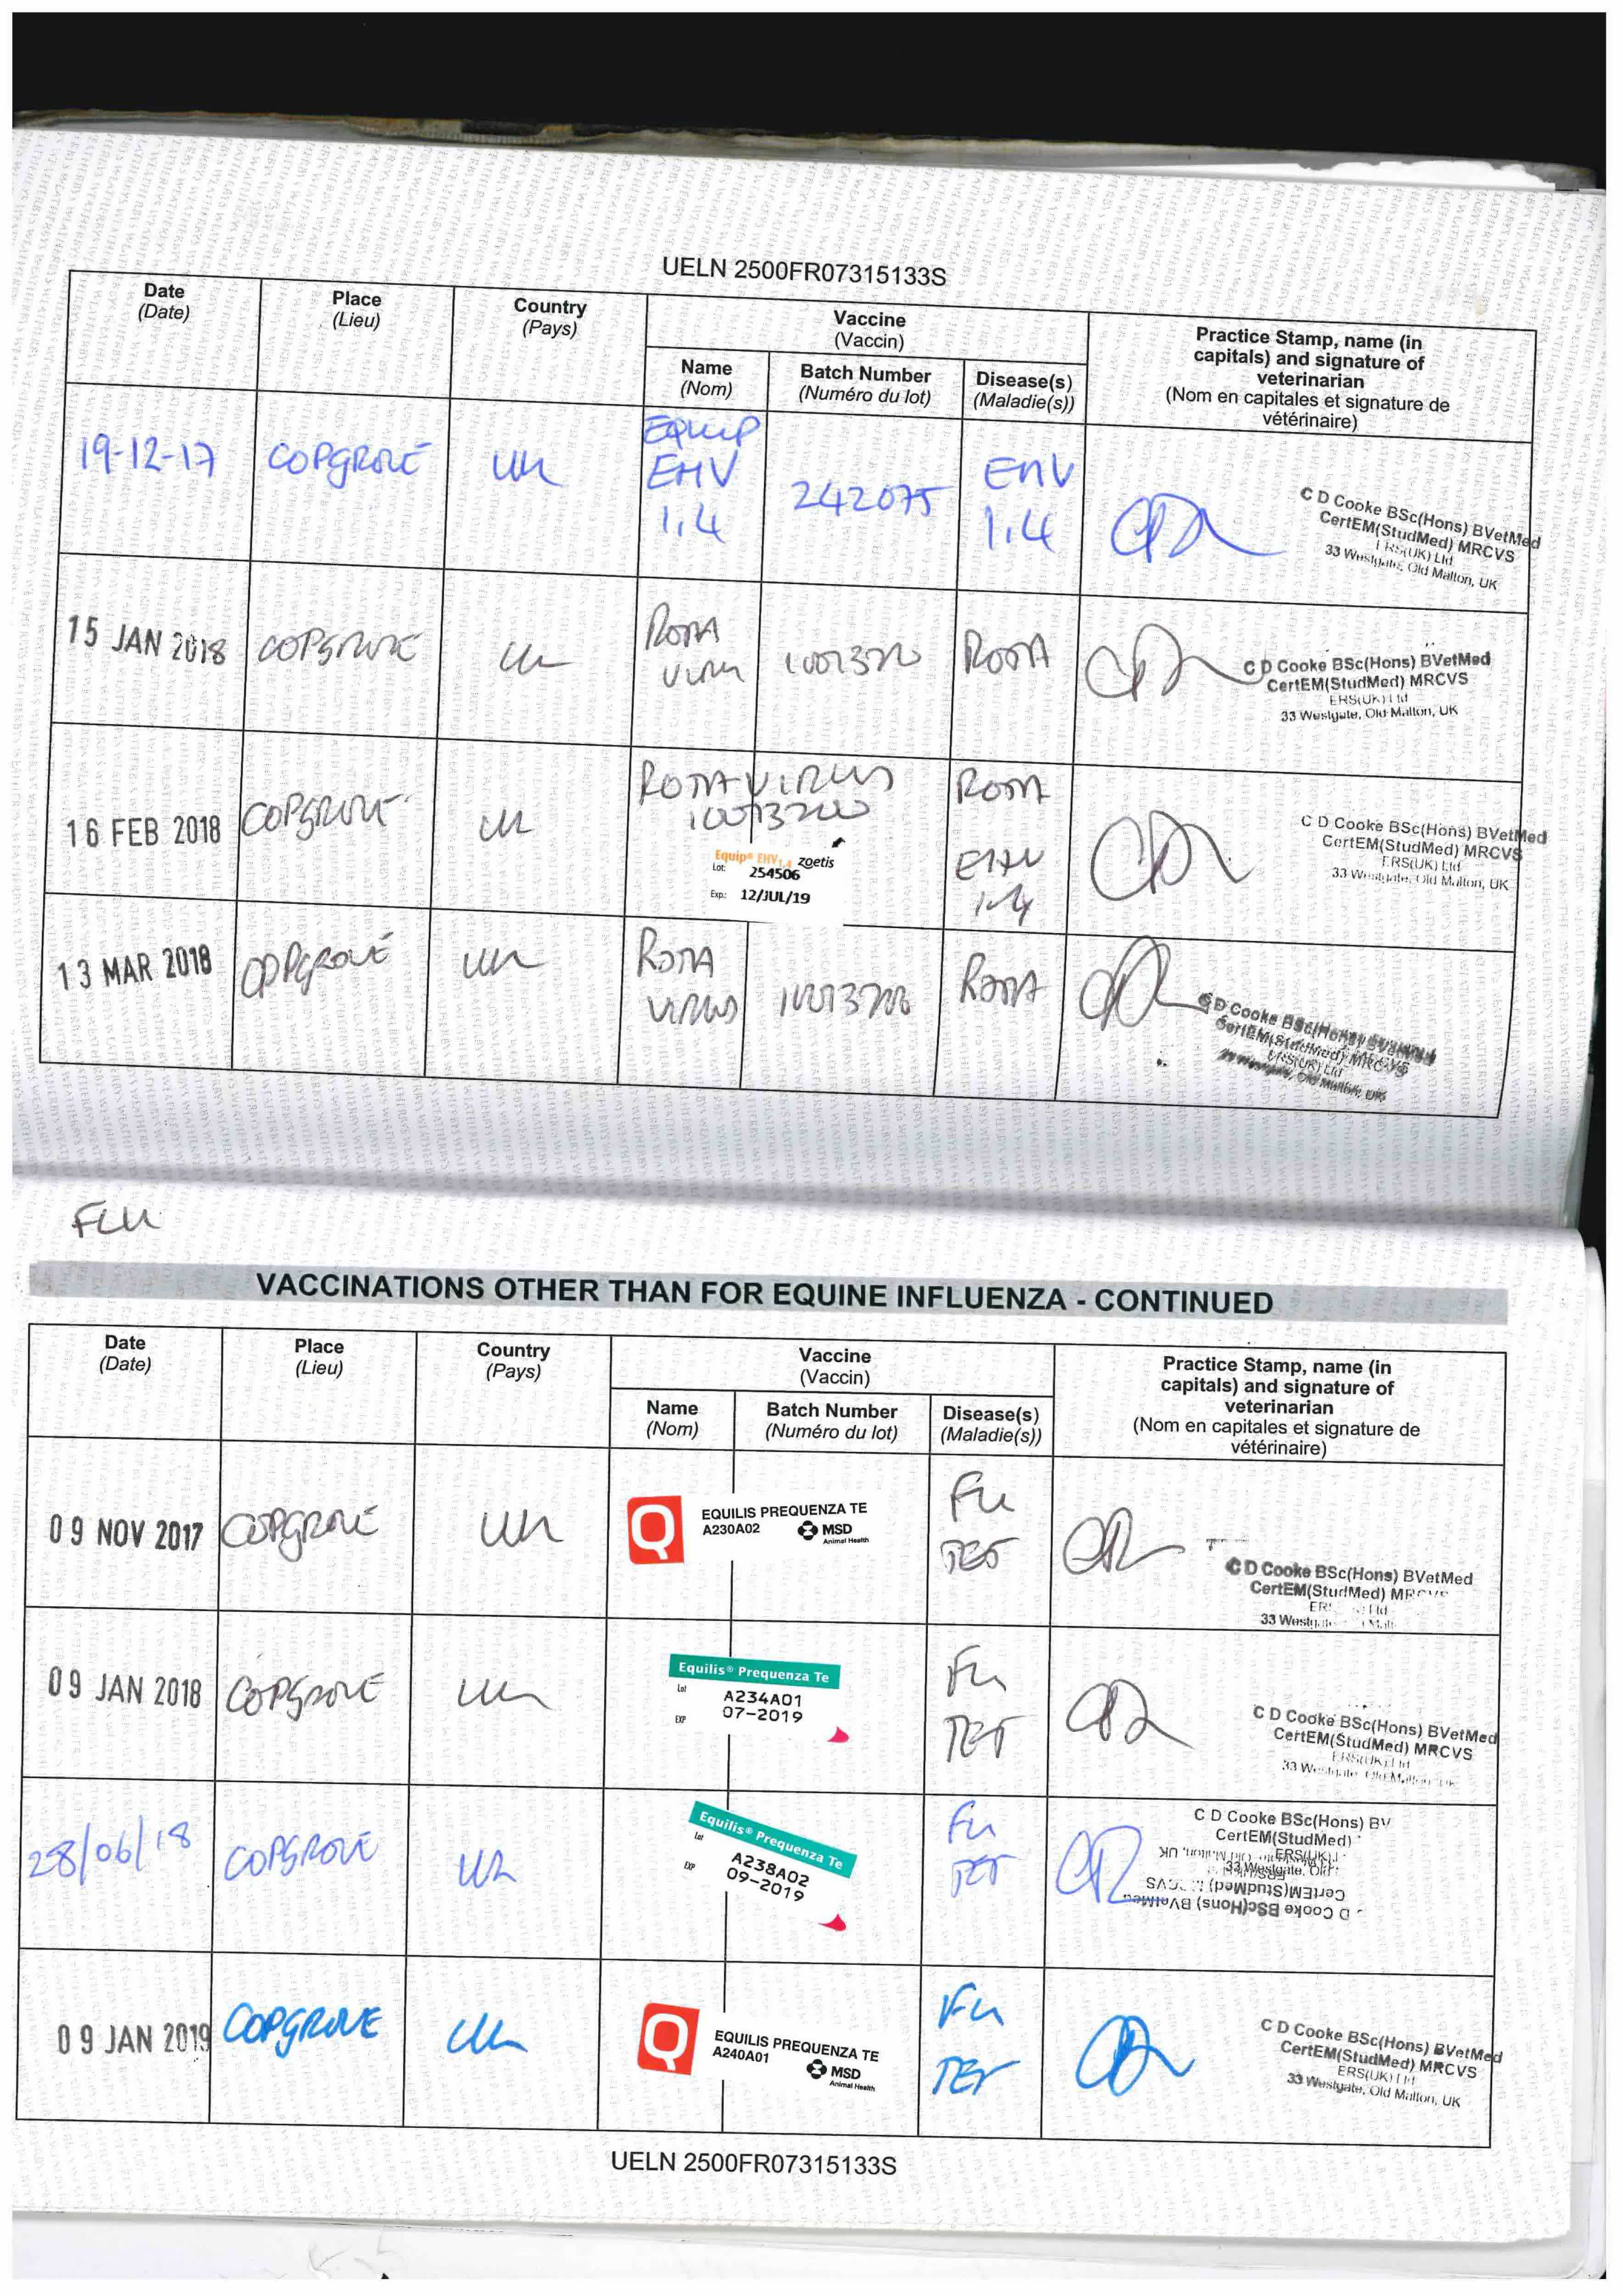 UELN 2500FR07315133S
Date
(Date)
Place
(Lieu)
Country
(Pays)
Vaccine
(Vaccin)
Name
(Nom)
Batch Number
(Numéro du lot)
Disease(s)
(Maladie(s))
Practice Stamp, name (in
capitals) and signature of
veterinarian
(Nom en capitales et signature de
vétérinaire)
19-12-17
COPGROVE
UK
EQUIP
EHV
1,4
242075
EHV
1.4
C D Cooke BSc(Hons) BVetMed
CertEM(StudMed) MRCVS
ERS(UK) Ltd
33 Westgate, Old Malton, UK
15 JAN 2018
COPGROVE
UK
ROTA
VIRUS
ROTA
C D Cooke BSc(Hons) BVetMed
CertEM(StudMed) MRCVS
ERS(UK) Ltd
33 Westgate, Old Malton, UK
16 FEB 2018
COPGROVE
UK
ROTAVIRUS
Equip® EHV1,4 zoetis
Lot: 254506
Exp: 12/JUL/19
ROTA
EHV
1.4
C D Cooke BSc(Hons) BVetMed
CertEM(StudMed) MRCVS
ERS(UK) Ltd
33 Westgate, Old Malton, UK
13 MAR 2018
COPGROVE
UK
ROTA
VIRUS
ROTA
C D Cooke BSc(Hons) BVetMed
CertEM(StudMed) MRCVS
ERS(UK) Ltd
Westgate, Old Malton, UK
FLU
VACCINATIONS OTHER THAN FOR EQUINE INFLUENZA - CONTINUED
Date
(Date)
Place
(Lieu)
Country
(Pays)
Vaccine
(Vaccin)
Name
(Nom)
Batch Number
(Numéro du lot)
Disease(s)
(Maladie(s))
Practice Stamp, name (in
capitals) and signature of
veterinarian
(Nom en capitales et signature de
vétérinaire)
09 NOV 2017
COPGROVE
UK
Q
EQUILIS PREQUENZA TE
A230A02 MSD
Animal Health
Flu
TET
C D Cooke BSc(Hons) BVetMed
CertEM(StudMed)
33
09 JAN 2018
COPGROVE
UK
Equilis® Prequenza Te
Lot A234A01
EXP 07-2019
Flu
TET
C D Cooke BSc(Hons) BVetMed
CertEM(StudMed) MRCVS
ERS(UK) Ltd
33 Westgate
28/06/18
COPGROVE
UK
Equilis® Prequenza Te
Lot A238A02
EXP 09-2019
Flu
TET
C D Cooke BSc(Hons) BV
CertEM(StudMed)
ERS(UK)
33 Westgate, Old
CertEM(StudMed)
D Cooke BSc(Hons) BVetMed
09 JAN 2019
COPGROVE
UK
Q
EQUILIS PREQUENZA TE
A240A01 MSD
Animal Health
Flu
TET
C D Cooke BSc(Hons) BVetMed
CertEM(StudMed) MRCVS
ERS(UK) Ltd
33 Westgate, Old Malton, UK
UELN 2500FR07315133S